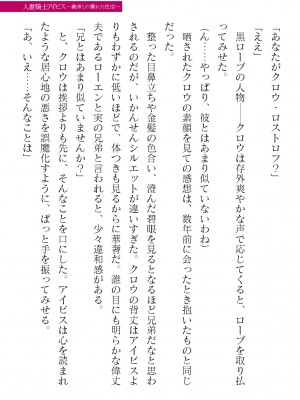 人妻騎士アイビス～義弟との爛れた性活～
「あなたがクロウ・ロストロフ？」
「ええ」
　黒ローブの人物――クロウは存外爽やかな声で応じてくると、ローブを取り払
ってみせた。
（ん……やっぱり、彼とはあまり似ていないわね）
　晒されたクロウの素顔を見ての感想は、数年前に会ったとき抱いたものと同じ
だった。
　整った目鼻立ちや金髪の色合い、澄んだ碧眼を見るとなるほど兄弟だなと思わ
されるのだが、いかんせんシルエットが違いすぎた。クロウの背丈はアイビスよ
りもわずかに低いほどで、体つきも見るからに華奢だ。誰の目にも明らかな偉丈
夫であるローエンと実の兄弟と言われると、少々違和感がある。
「兄とはあまり似ていませんか？」
　と、クロウは挨拶よりも先に、そんなことを口にした。アイビスは心を読まれ
たような居心地の悪さを誤魔化すように、ぱっと手を振ってみせる。
「あ、いえ……そんなことは」